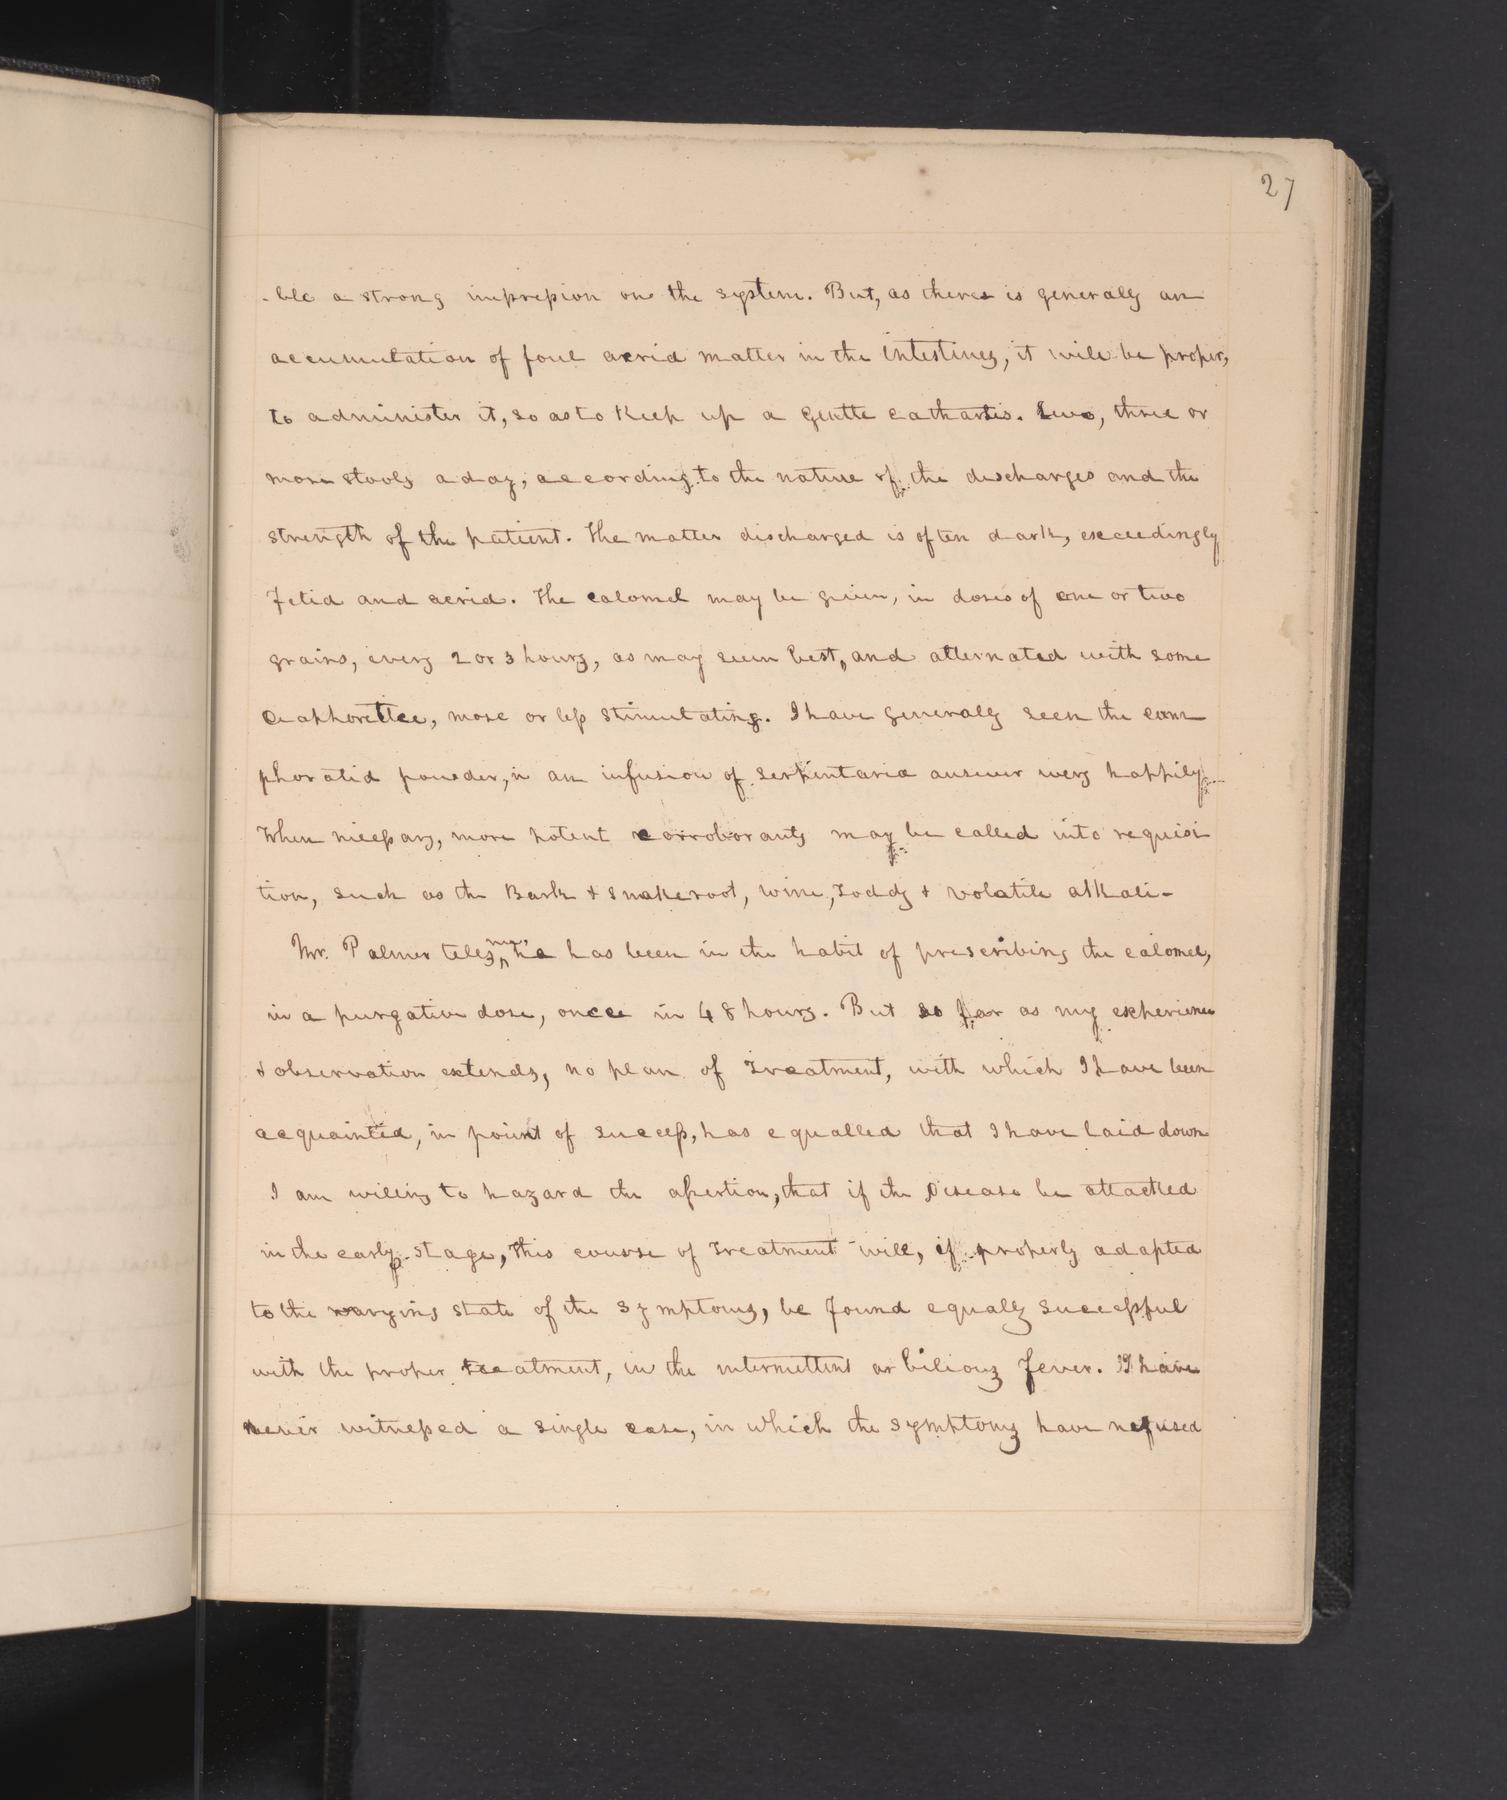 27
-ble a strong impression on the system. But, as there is generaly an
accumulation of foul acrid matter in the intestines, it will be proper,
to administer it, so as to keep up a gentle catharsis. Two, three or
more stools a day, according to the nature of the discharges and the
strength of the patient. The matter discharged is often dark, exceedingly
fetid and acrid. The calomel may be given, in doses of one or two
grains, every 2 or 3 hours, as may seem best, and alternated with some
diaphoretic, more or less stimulating. I have generaly seen the cam
phorated powder, in an infusion of serpentaria answer very happily
When necessary, more potent corroborants may be called into requisi
tion, such as the Bark & snakeroot, wine, Toddy & volatile alkali-
Mr. Palmer tells me, he has been in the habit of prescribing the calomel,
in a purgative dose, once in 48 hours. But so far as my experience
& observation extends, no plan of Treatment, with which I have been
acquainted, in point of success, has equalled that I have laid down
I am willing to hazard the assertion, that if the Disease be attacked
in the early stage, this course of Treatment will, if properly adapted
to the varying state of the symptoms, be found equaly successful
with the proper treatment, in the intermittent or bilious fever. I have
never witnessed a single case, in which the symptoms have refused